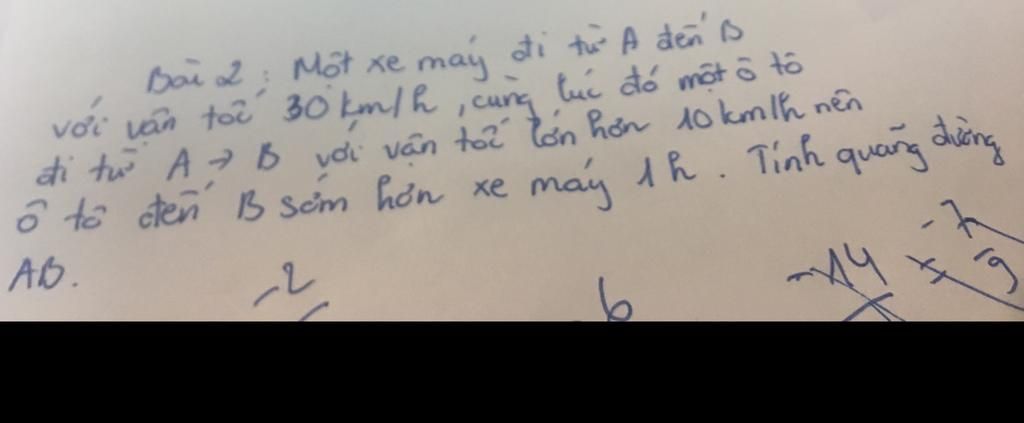 Bài 2 : Một xe máy đi từ A đến B
với vận tốc 30 km/h , cùng lúc đó một ô tô
đi từ A → B với vận tốc lớn hơn 10 km/h nên
ô tô đến B sớm hơn xe máy 1 h . Tính quãng đường
AB.
-2
6
-14
-7
9